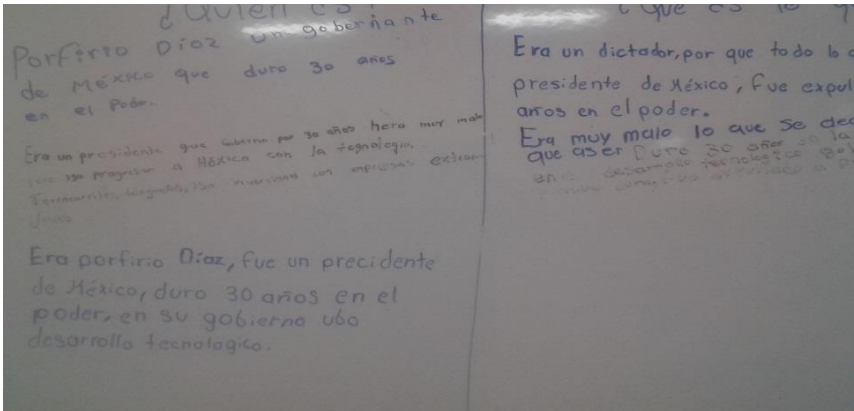 ¿Quién es?
Porfirio Díaz un gobernante
de México que duro 30 años
en el Poder.
Era un presidente que por 30 años hera muy malo
progresar a México con la tegnologia,
inversiones con empresas
Era porfirio Díaz, fue un precidente
de México, duro 30 años en el
poder, en su gobierno ubo
desarrollo tecnologico.
¿Que es lo q
Era un dictador, por que todo lo
presidente de México, fue expul
años en el poder.
Era muy malo lo que se dec
que aser Duro 30 años en la
en desarrollo tecnologico